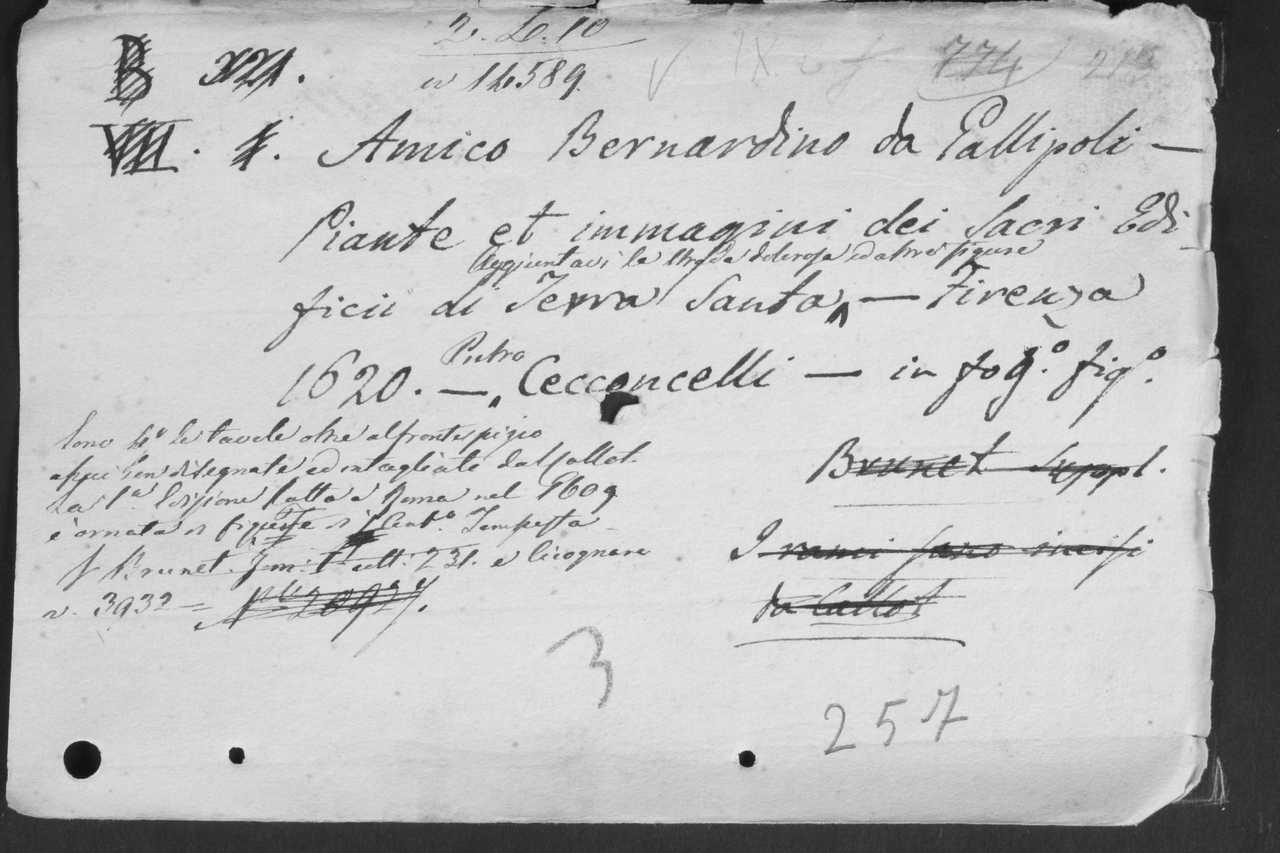 2. L. 10
B XXI.
n 14589.
774
VIII. 1. Amico Bernardino da Gallipoli —
Piante et immagini dei Sacri Edi-
Aggiuntavi la strada dolorosa ed altre figure
ficii di Terra Santa — Firenza
Pietro
1620. — Cecconcelli — in fog.º fig.º
Sono le tavole oltre al frontespizio
disegnate ed intagliate dal Callot.
La 1ª Edizione fatta a Roma nel 1609
è ornata di figure di Antº Tempesta
Brunet suppl.
V Brunet. Tom. 1 coll. 231. e Cicognara
I rami sono incisi
n. 3932 =
da Callot
3
257